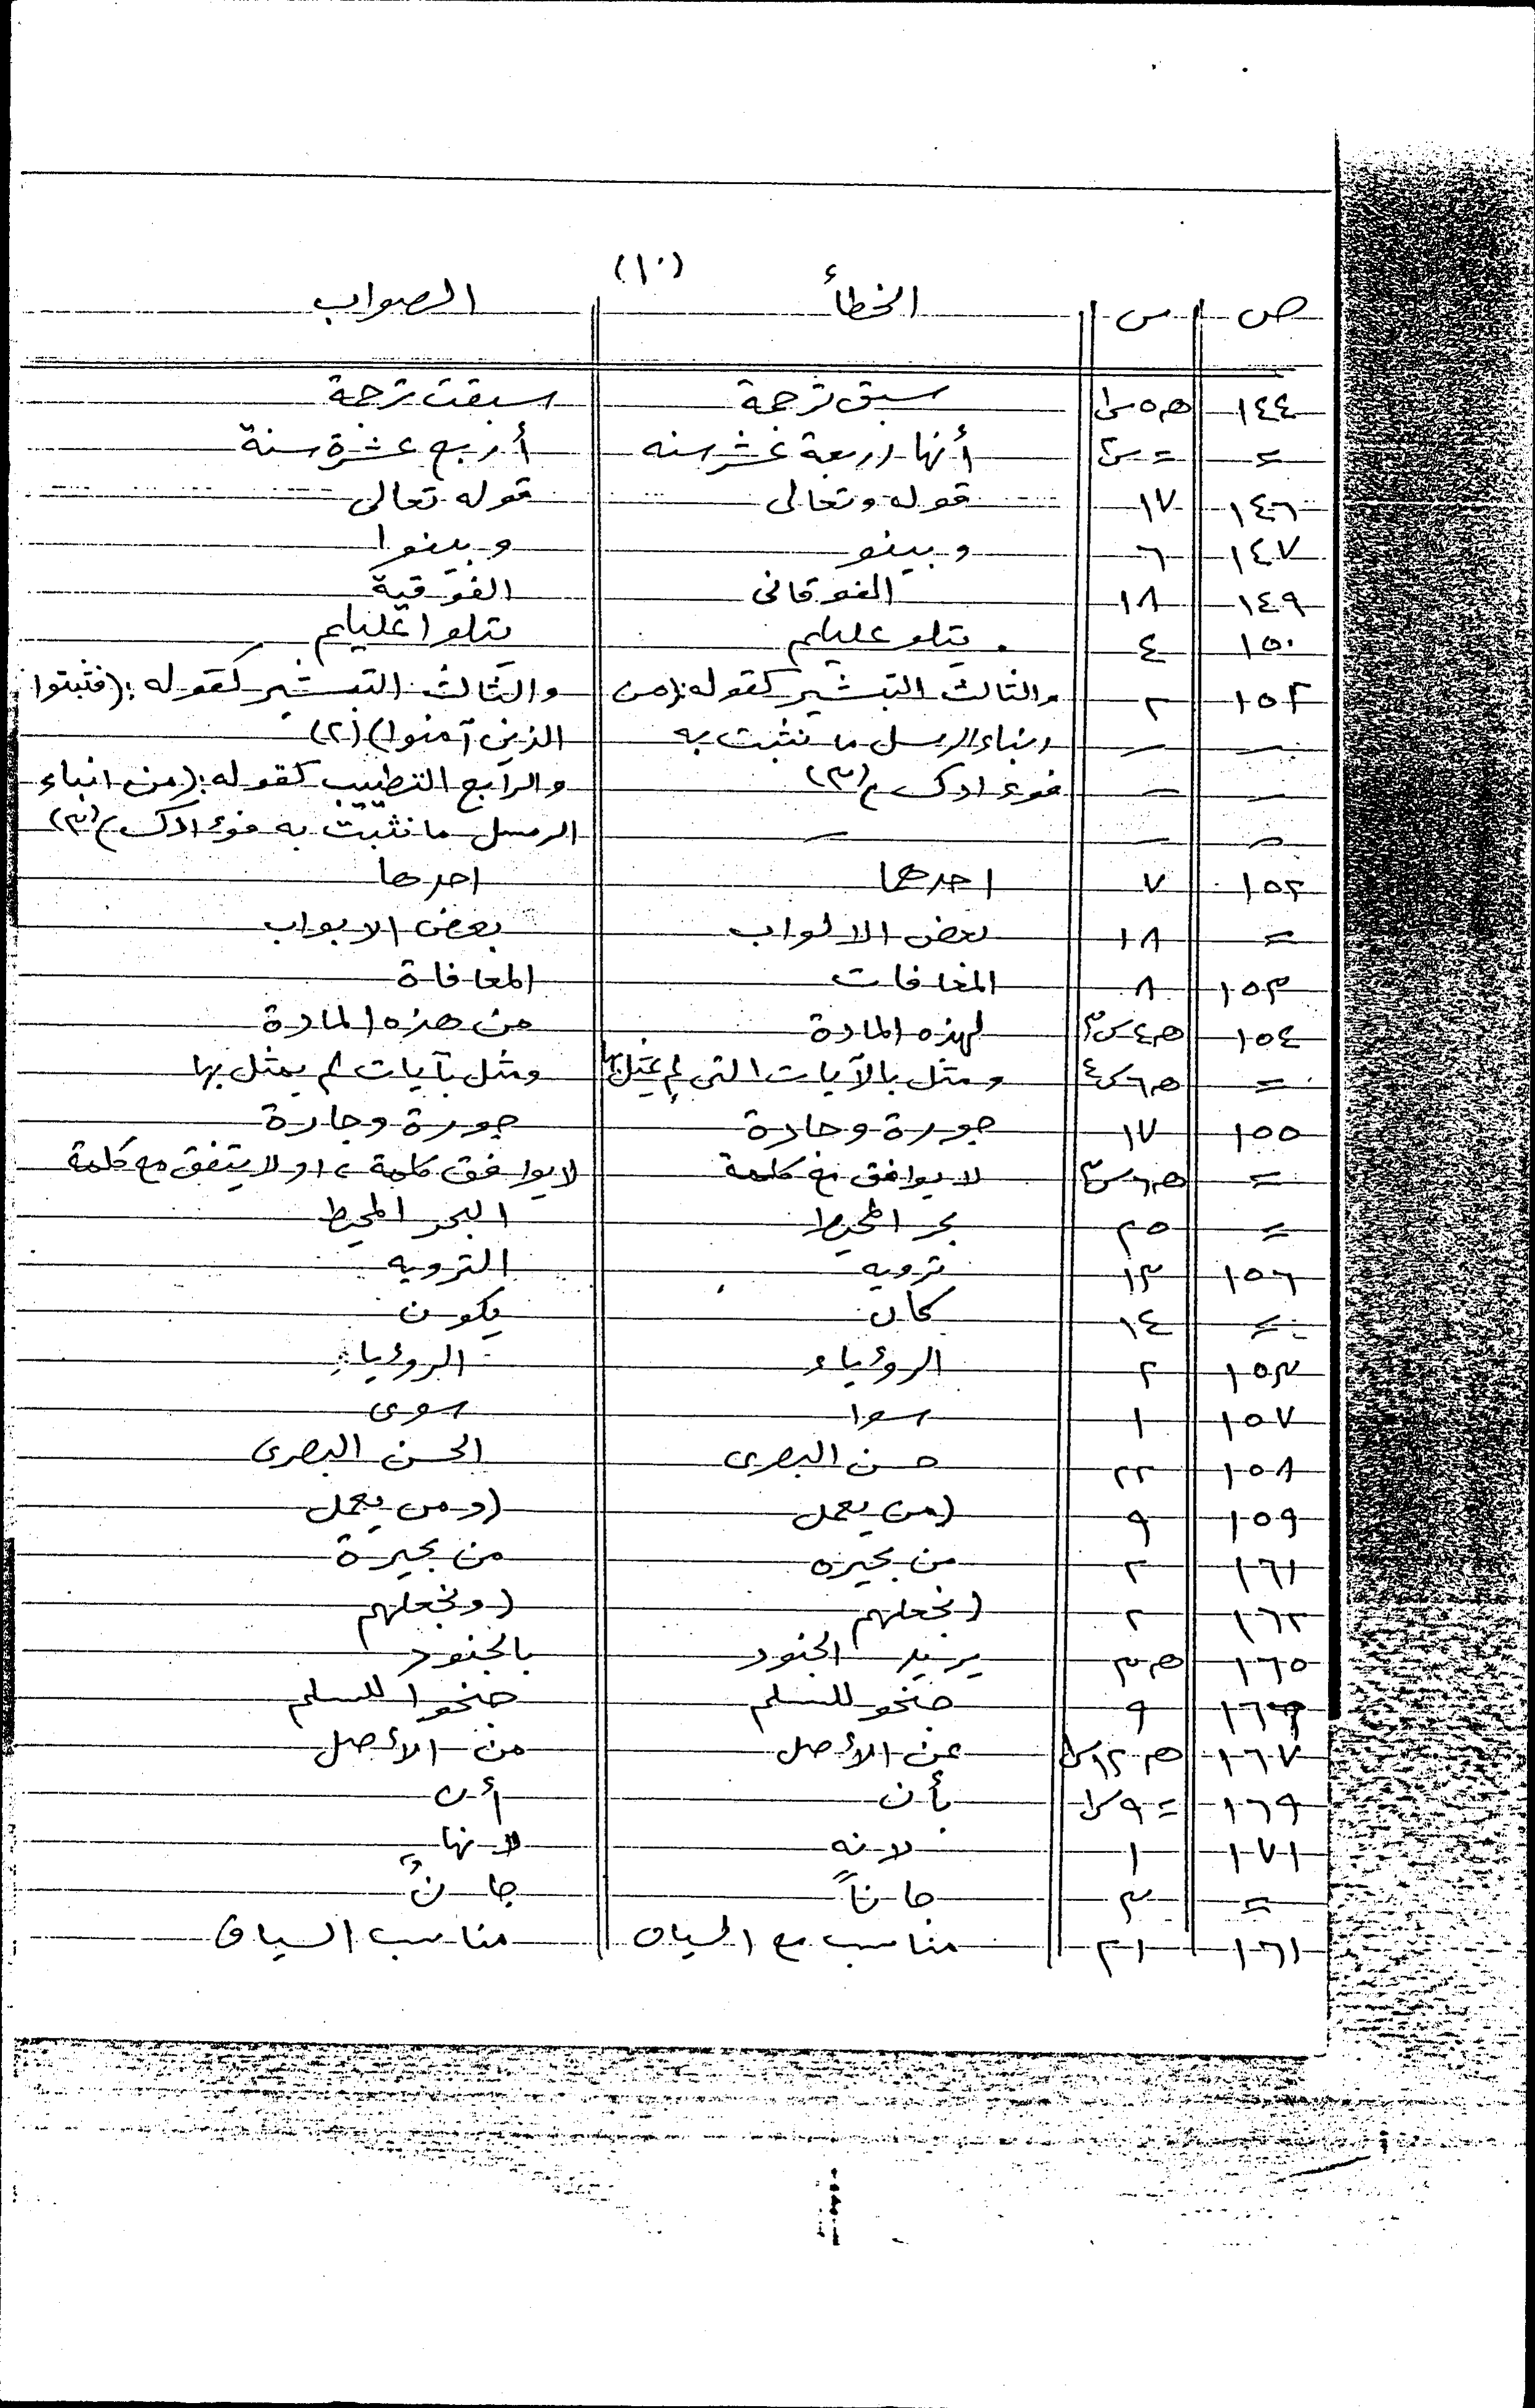 (١٠)
ص س الخطأ الصواب
١٤٤ هـ٥ س١ سبق ترجمة سبقت ترجمة
= = س٢ أنها اربعة عشر سنه أربع عشرة سنة
١٤٦ ١٧ قوله وتعالى قوله تعالى
١٤٧ ٦ وبينو وبينوا
١٤٩ ١٨ الفوقانى الفوقية
١٥٠ ٤ يتلو عليكم يتلوا عليكم
١٥٢ ٢ والثالث التبشير كقوله:(من والثالث التبشير كقوله:(فثبتوا
انباء الرسل ما نثبت به الذين آمنوا)(٢)
فوءادك)(٣) والرابع التطييب كقوله:(من انباء
الرسل ما نثبت به فوءادك)(٣)
١٥٢ ٧ احدهما احدها
= ١٨ بعض الالواب بعض الابواب
١٥٣ ٨ المغافات المعافاة
١٥٤ هـ٤ س٣ لهذه المادة من هذه المادة
= هـ٦ س٤ ومثل بالآيات التى لم يمثل بها ومثل بآيات لم يمثل بها
١٥٥ ١٧ جورة وحادة جورة وجادة
= هـ٦ س٣ لا يوافق مع كلمة لا يوافق كلمة، او لا يتفق مع كلمة
= ٢٥ بحر المحيط البحر المحيط
١٥٦ ١٣ ترويه الترويه
= ١٤ كان يكون
١٥٣ ٢ الروءياء الروءيا
١٥٧ ١ سوا سوى
١٥٨ ٢٢ حسن البصرى الحسن البصرى
١٥٩ ٩ (من يعمل (ومن يعمل
١٦١ ٢ من بحيره من بحيرة
١٦٢ ٢ (نجعلهم (ونجعلهم
١٦٥ هـ٣ يريد الجنود بالجنود
١٦٦ ٩ جنحو للسلم جنحوا للسلم
١٦٧ هـ١٢ س١ عن الأصل من الأصل
١٦٩ = ٩ س١ بأن أن
١٧١ ١ لانه لانها
= ٣ جاناً جانٌ
١٦١ ٢١ مناسب مع السياق مناسب السياق